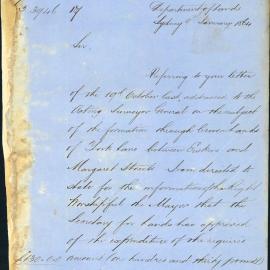 Department of Lands
Sydney January 1864
Sir,
Referring to your letter
of the 19th October last, addressed to the
Acting Surveyor General on the subject
of the formation through Government lands
of York Lane between Erskine and
Margaret Streets I am directed to
state for the information of the Right
Worshipful the Mayor that the
Secretary for Lands has approved
of the expenditure of the requisite
£130.0.0 amount (one hundred and thirty pounds)